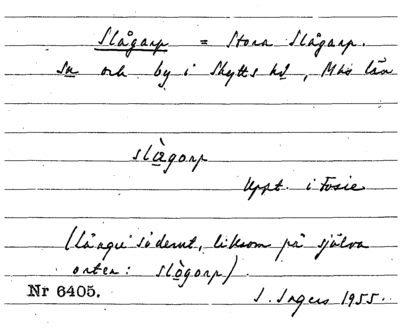 Slågarp = Stora Slågarp.
Sn och by i Skytts hd, Mhs län
slägarp
Uppt. i Fosie
(längre söderut, liksom på själva
orten: slögarp).
Nr 6405.
I. Ingers 1955.